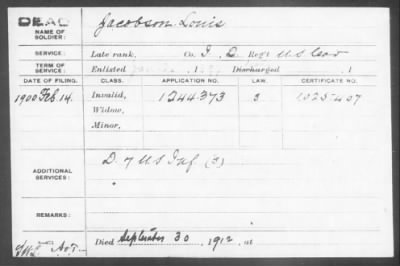 DEAD
NAME OF SOLDIER: Jacobson Louis
SERVICE: Late rank, Co. I, D Reg't U S Cav
TERM OF SERVICE: Enlisted 1 Discharged 1
DATE OF FILING. CLASS. APPLICATION NO. LAW. CERTIFICATE NO.
1900 Feb. 14. Invalid, 1244373 3 1025407
Widow,
Minor,
ADDITIONAL SERVICES: D. 7 U S Inf (3)
REMARKS:
Died September 30, 1912, at